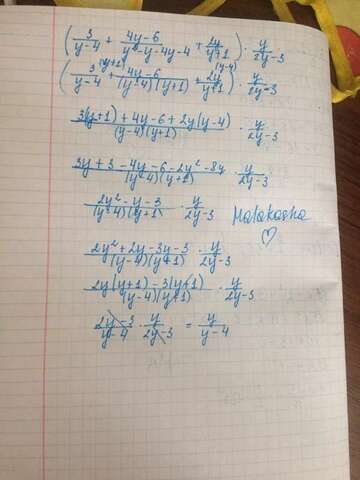 (3/(y-4) + (4y-6)/(y²-y-4y-4) + 2y/(y+1)) · y/(2y-3)
(3/(y-4) (y+1) + (4y-6)/((y-4)(y+1)) + 2y/(y+1) (y-4)) · y/(2y-3)
(3(y+1)+4y-6+2y(y-4))/((y-4)(y+1)) · y/(2y-3)
(3y+3-4y-6-2y²-8y)/((y-4)(y+1)) · y/(2y-3)
(2y²-y-3)/((y-4)(y+1)) · y/(2y-3)
Malakasha ♡
(2y²+2y-3y-3)/((y-4)(y+1)) · y/(2y-3)
(2y(y+1)-3(y+1))/((y-4)(y+1)) · y/(2y-3)
(2y-3)/(y-4) · y/(2y-3) = y/(y-4)